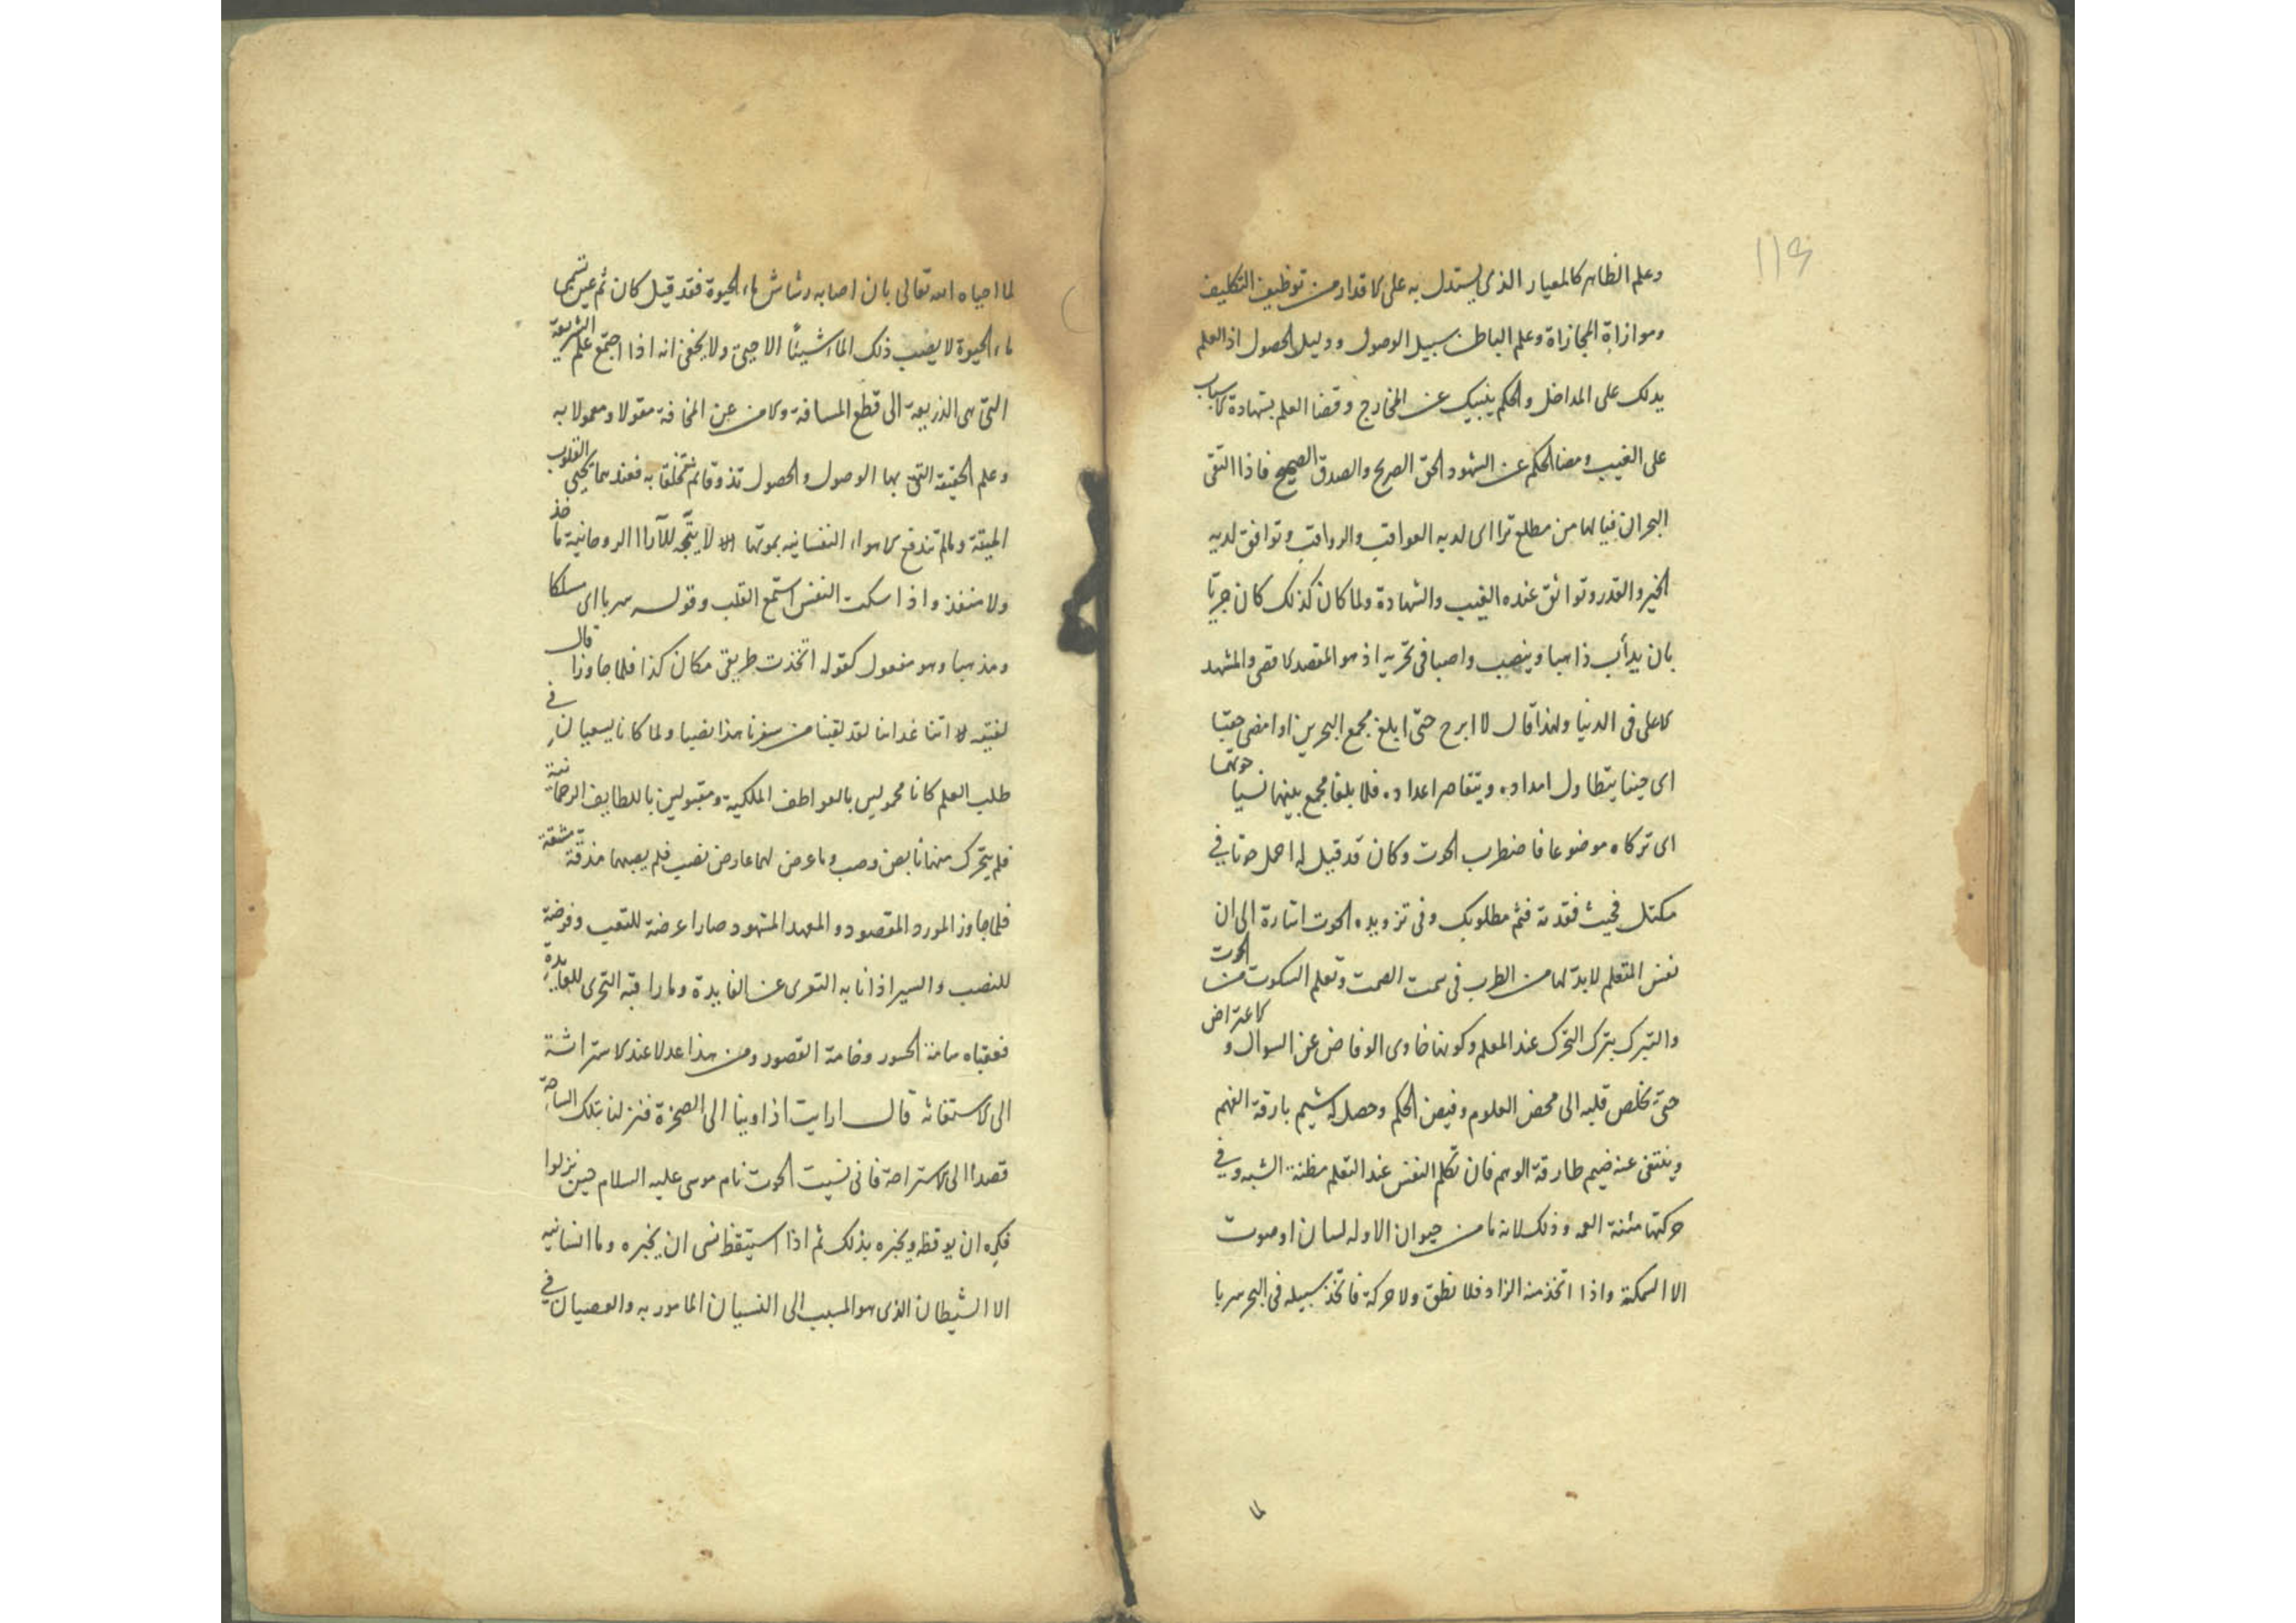 وعلم الظاهر كالمعيار الذى يستدل به على الاقدار من توظيف التكليف
وموازاة المجازاة وعلم الباطن سبيل الوصول ودليل الحصول اذ العلم
يدلك على المداخل والحكم ينبيك عن المخارج وقضا العلم بشهادة الاسباب
على الغيب ومضا الحكم عن الشهود الحق الصريح والصدق الصحيح فاذا التقى
البحران فيالها من مطلع تراأى لديه العواقب والرواقب وتوافق لديه
الخير والقدر وتواثق عنده الغيب والشهادة ولما كان كذلك كان حريّا
بان يدأب ذاهبا وينصب واصبا فى تحريه اذ هو المقصد الاقصى والمشهد
الاعلى فى الدنيا ولهذا قال لا ابرح حتى ابلغ مجمع البحرين او امضى حقبا
اى حينا يتطاول امداده ويتقاصر اعداده فلما بلغا مجمع بينهما نسيا حوتهما
اى تركاه موضوعا فاضطرب الحوت وكان قد قيل له احمل حوتا فى
مكتل فحيث فقدته فثم مطلوبك وفى تزويده الحوت اشارة الى ان
نفس المتعلم لابد لها من الطرب فى سمت الصمت وتعلم السكوت من الحوت
والتبرك بترك التحرك عند المعلم وكونها خاوى الوفاض عن السوال والاعتراض
حتى يخلص قلبه الى محض العلوم وفيض الحكم وحصل له شيم بارقة الفهم
وينتفى عنه ضيم طارقة الوهم فان تكلم النفس عند التعلم مظنة الشبه وفى
حركتها مئنة العمه وذلك لانه ما من حيوان الا وله لسان او صوت
الا السمكة واذا اتخذ منه الزاد فلا نطق ولا حركة فاتخذ سبيله فى البحر سربا
لما
لما احياه الله تعالى بان اصابه رشاش ماء الحيوة فقد قيل كان ثم عين تسمى
ماء الحيوة لا يصيب ذلك الماء شيئًا الا حيى ولا يخفى انه اذا اجتمع علم الشريعة
التى هى الذريعة الى قطع المسافة والامن عن المخافة مقولا ومعمولا به
وعلم الحقيقة التى بها الوصول والحصول تذوقا ثم تخلقا به فعندهما يحيى القلوب
الميتة ومالم تندفع الاهواء النفسانيه بموتها لا يتّجه للآراء الروحانية مأخذ
ولا منفذ واذا سكت النفس استمع القلب وقوله سربا اى مسلكا
ومذهبا وهو مفعول كقوله اتخذت طريقى مكان كذا فلما جاوزا قال
لفتيه اتنا غدائنا لقد لقينا من سفرنا هذا نصبا ولما كانا يسعيان فى
طلب العلم كانا محمولين بالعواطف الملكية ومقبولين باللطايف الرحمانية
فلم يتحرك منهما نابض وصب وما عرض لهما عارض نصب فلم يصبهما مذقة مشقة
فلما جاوز المورد المقصود والمعهد المشهود صارا عرضة للتعب وفرضة
للنصب والسير اذا نابه التعرى عن الفايدة وما راقبه التحرى للعايدة
فعقباه سامة الحسور وخامة القصور ومن هذا عدلا عند الاستراثة
الى الاستغاثه قال ارايت اذ اوينا الى الصخرة فنزلنا بتلك الساحة
قصدا الى الاستراحة فانى نسيت الحوت نام موسى عليه السلام حين نزلوا
فكره ان يوقظه ويخبره بذلك ثم اذا استيقظ نسى ان يخبره وما انسانيه
الا الشيطان الذى هو المسبب الى النسيان المامور به والعصيان فى